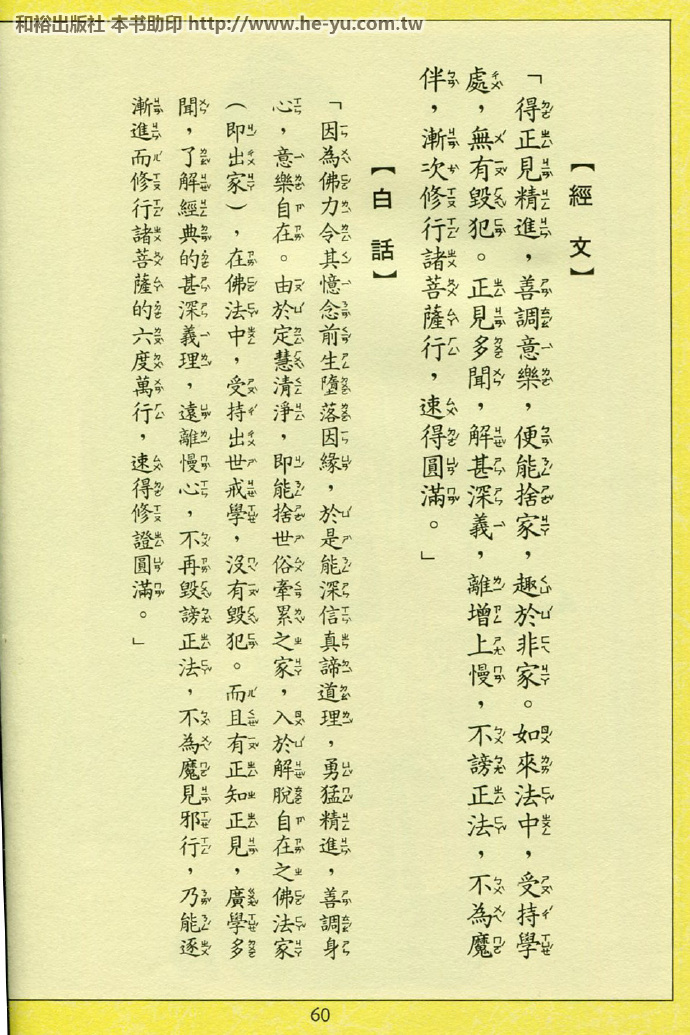 和裕出版社 本书助印 http://www.he-yu.com.tw
【經文】
「得正見精進，善調意樂，便能捨家，趣於非家。如來法中，受持學
處，無有毀犯。正見多聞，解甚深義，離增上慢，不謗正法，不為魔
伴，漸次修行諸菩薩行，速得圓滿。」
【白話】
「因為佛力令其憶念前生墮落因緣，於是能深信真諦道理，勇猛精進，善調身
心，意樂自在。由於定慧清淨，即能捨世俗牽累之家，入於解脫自在之佛法家
（即出家），在佛法中，受持出世戒學，沒有毀犯。而且有正知正見，廣學多
聞，了解經典的甚深義理，遠離慢心，不再毀謗正法，不為魔見邪行，乃能逐
漸進而修行諸菩薩的六度萬行，速得修證圓滿。」
60